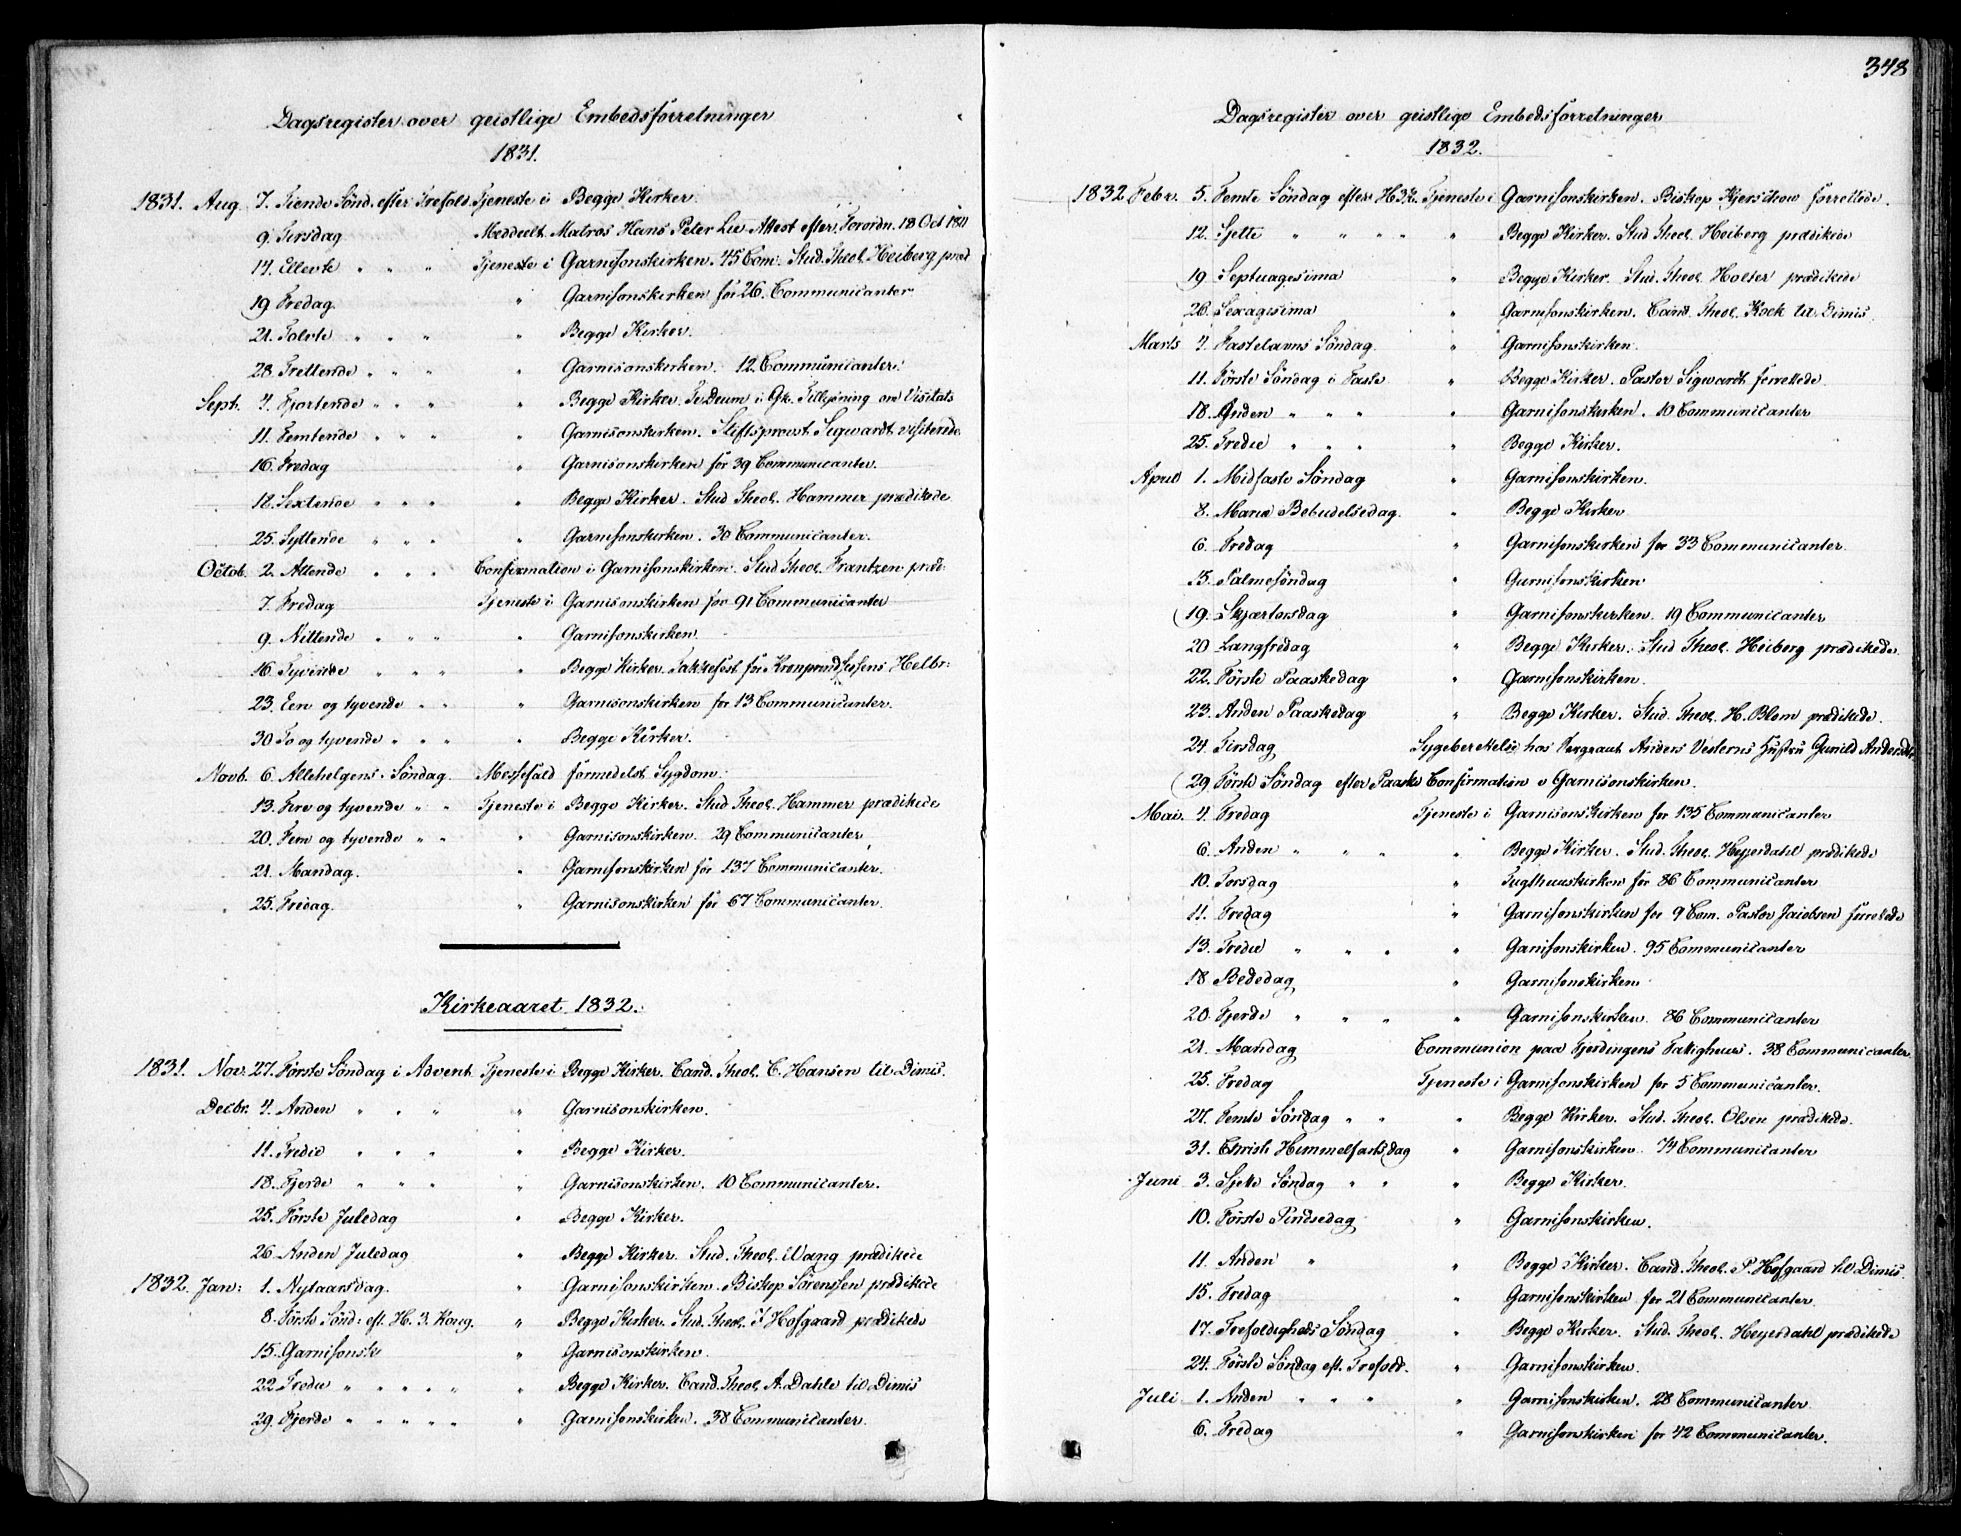 Dagsregister over geistlige Embedsforretninger
1831.
1831. Aug. 7. Tiende Sønd. efter Trefold. Tjeneste i Begge Kirker.
9. Tirsdag Meddeelt Matros Hans Peter Lie Attest efter Forordn. 18 Oct 1811
14. Ellevte " " " Tjeneste i Garnisonskirken. 45 Com. Stud. Theol. Heiberg præd
19 Fredag " Garnisonskirken for 26. Communicanter
21. Tolvte " " " " Begge Kirker.
28. Trettende " " " " Garnisonskirken. 12 Communicanter.
Sept. 4. Fjortende " " " " Begge Kirker. Te Deum i Gk. Tillysning om Visitats
11. Femtende " " " " Garnisonskirken. Stiftsprovst Sigwardt visiterede.
16. Fredag " Garnisonskirken for 39 Communicanter.
18. Sextende " " " " Begge Kirker. Stud Theol. Hammer prædikede
25. Syttende " " " " Garnisonskirken. 30 Communicanter.
Octob. 2. Attende " " " Confirmation i Garnisonskirken. Stud Theol. Frantzen præd.
7. Fredag Tjeneste i Garnisonskirken for 91 Communicanter
9. Nittende " " " " Garnisonskirken.
16. Tyvende " " " " Begge Kirker. Takkefest for Kronprindsessens Helbr:
23. Een og tyvende " " " Garnisonskirken for 13 Communicanter.
30 To og tyvende " " " " Begge Kirker.
Novb. 6. Allehelgens Søndag. Messefald formedelst Sygdom.
13. Fire og tyvende " " Tjeneste i Begge Kirker. Stud Theol. Hammer prædikede
20. Fem og tyvende " " " Garnisonskirken. 29 Communicanter.
21. Mandag. " Garnisonskirken for 137 Communicanter.
25. Fredag. " Garnisonskirken for 67 Communicanter.
Kirkeaaret 1832.
1831. Nov. 27. Første Søndag i Advent Tjeneste i Begge Kirker. Cand. Theol. C. Hansen til Dimis.
Decbr. 4. Anden " " " " Garnisonskirken.
11. Tredie " " " " Begge Kirker.
18. Fjerde " " " " Garnisonskirken. 10 Communicanter.
25. Første Juledag " Begge Kirker.
26. Anden Juledag " Begge Kirker. Stud. Theol. Wang prædikede
1832. Jan: 1. Nytaarsdag. " Garnisonskirken. Biskop Sörenssen prædikede
8. Første Sønd: eft. H. 3. Kong. " Begge Kirker. Stud. Theol. I Hofgaard prædikede
15. Garnisonsk " Garnisonskirken.
22 Tredie " " " " " " Begge Kirker. Cand. Theol. A. Dahle til Dimis
29. Fjerde " " " " " " Garnisonskirken. 38 Communicanter.
348
Dagsregister over geistlige Embedsforretninger
1832.
1832 Febr. 5. Femte Søndag efter H3K. Tjeneste i Garnisonskirken. Biskop forrettede.
12. Sjette " " " " " Begge Kirker. Stud Theol. Heiberg prædikede
19. Septuagesima " Begge Kirker. Stud. Theol. Holter prædikede
26. Sexagesima " Garnisonskirken. Cand. Theol. Kock til Dimis.
Marts 4. Fastelavns Søndag " Garnisonskirken.
11. Første Søndag i Faste " Begge Kirker. Pastor Sigwardt forrettede
18. Anden " " " " Garnisonskirken. 10 Communicanter
25. Tredie " " " " Begge Kirker.
April 1. Midfaste Søndag " Garnisonskirken.
8. Mariæ Bebudelsedag. " Begge Kirker
6. Fredag " Garnisonskirken for 33 Communicanter.
15. Palmesøndag " Garnisonskirken
19. Skjærtorsdag " Garnisonskirken. 19 Communicanter
20 Langfredag " Begge Kirker. Stud Theol. Heiberg prædikede.
22. Første Paaskedag " Garnisonskirken.
23. Anden Paaskedag " Begge Kirker. Stud. Theol. H. Blom prædikede.
24. Tirsdag Sygeberettelse hos Sergeant Anders Vesterns Hustru Gunild
29 Første Søndag efter Paaske Confirmation i Garnisonskirken.
Mai. 4. Fredag Tjeneste i Garnisonskirken for 135 Communicanter
6. Anden " " " " Begge Kirker. Stud. Theol. Heyerdahl prædikede
10. Torsdag " Tugthuuskirken for 86 Communicanter
11. Fredag " Garnisonskirken for 9 Com. Pastor Jacobsen forrettede
13. Tredie " " " " Garnisonskirken. 95 Communicanter
18 Bededag " Garnisonskirken
20. Fjerde " " " " Garnisonskirken. 86 Communicanter
21. Mandag Communion paa Fjerdingens Fattighuus. 38 Communicanter
25. Fredag Tjeneste i Garnisonskirken for 5 Communicanter.
27. Femte Søndag " " " Begge Kirker. Stud. Theol. Olsen prædikede.
31. Christi Himmelfartsdag " Garnisonskirken. 74 Communicanter
Juni 3. Sjette Søndag " " " Begge Kirker.
10. Første Pindsedag " Garnisonskirken.
11. Anden " " Begge Kirker. Cand. Theol. P. Hofgaard til Dimis.
15. Fredag " Garnisonskirken for 21 Communicanter
17. Trefoldigheds Søndag " Begge Kirker. Stud. Theol. Heyerdahl prædikede
24. Første Søndag eft. Trefold. " Garnisonskirken.
Juli 1. Anden " " " " Garnisonskirken. 28 Communicanter
6. Fredag " Garnisonskirken for 42 Communicanter.